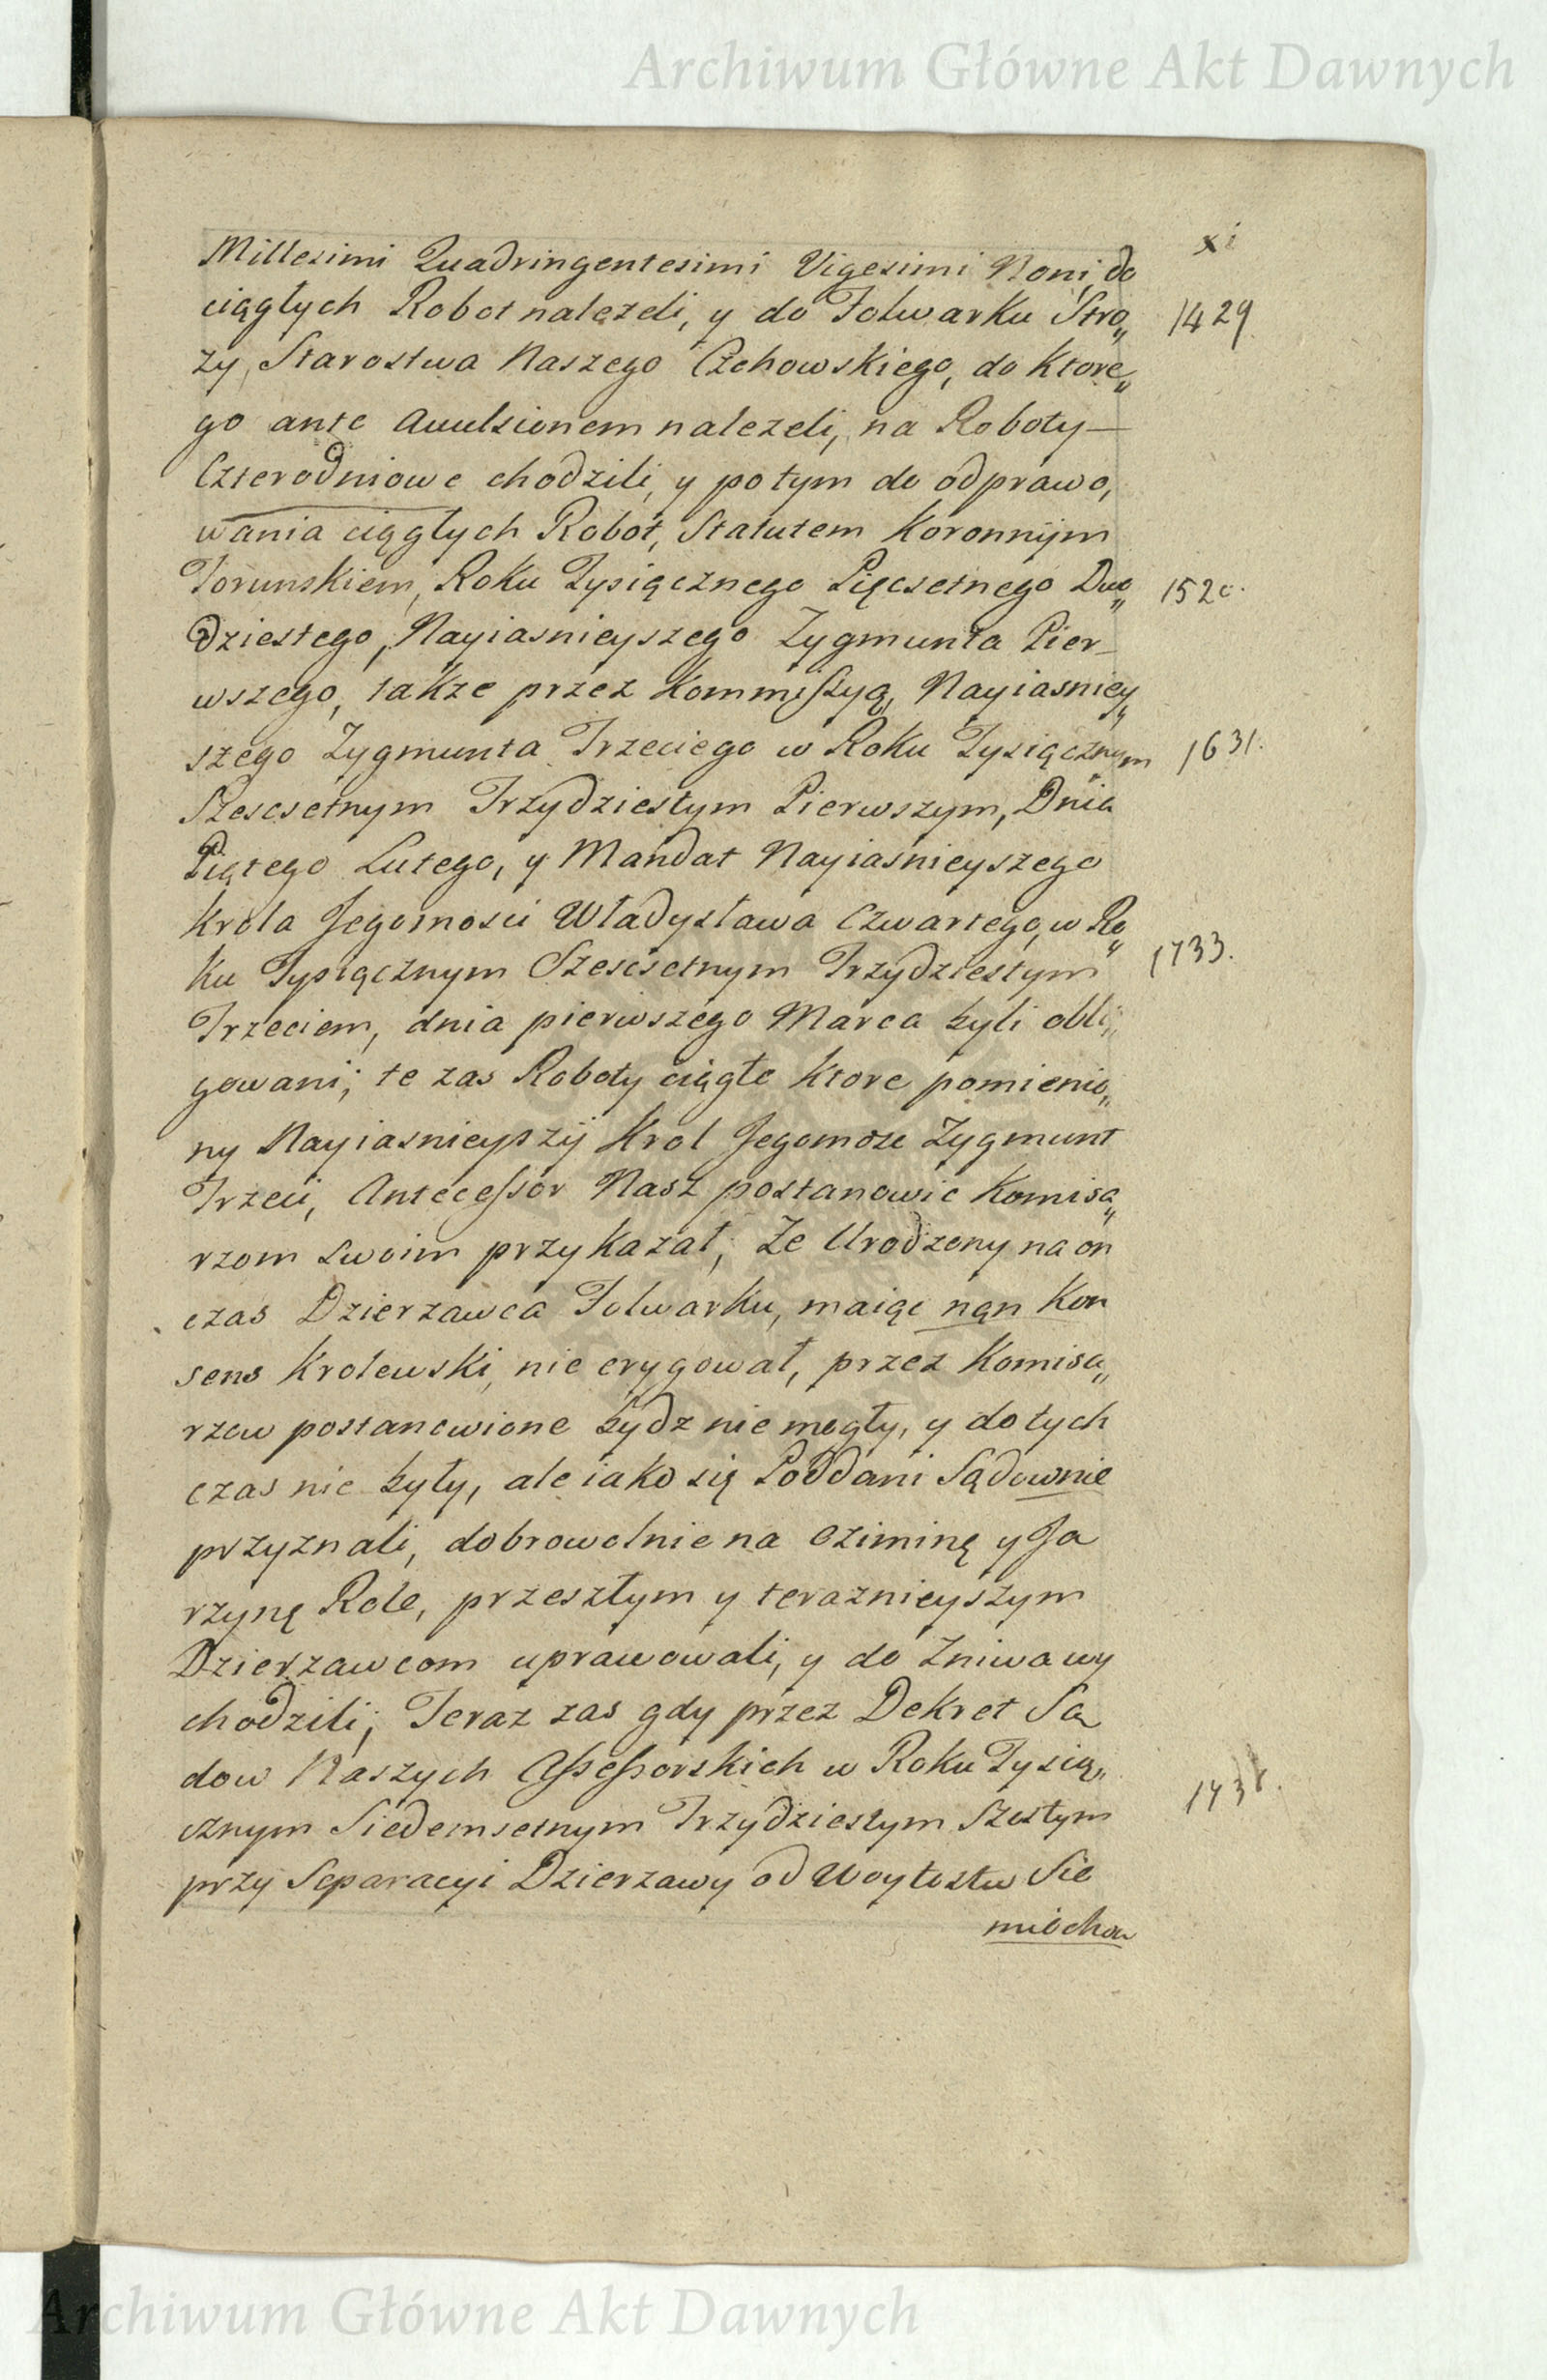 Archiwum Główne Akt Dawnych
xi
Millesimi Quadringentesimi Vigesimi Noni, do
ciągłych Robot nalezeli, y do Folwarku Stro„ 1429
zy, Starostwa Naszego Czchowskiego, do Ktore„
go ante avulsionem nalezeli, na Roboty—
Czterodniowe chodzili, y potym do odprawo,
wania ciągłych Robot, Statutem Koronnÿm
Torunskiem, Roku Tysiącznego Pięcsetnego Dwo„ 1520.
dziestego, Nayiasnieyszego Zygmunta Pier_
wszego, takze przez Kommissyą, Nayiasniey„
szego Zygmunta Trzeciego w Roku Tysiącznym 1631.
Szescsetnym Trzydziestym Pierwszym, Dnia
Piątego Lutego, y Mandat Nayiasnieyszego
Krola Jegomosci Władysława Czwartego, w Ro„
ku Tysiącznym Szescsetnym Trzydziestym 1733.
Trzeciem, dnia pierwszego Marca byli obli„
gowani; te zas Roboty ciągłe Ktore pomienio„
ny Nayiasnieyszÿ Krol Jegomosc Zygmunt
Trzeci, Antecessor Nasz postanowic Komisa„
rzom swoim przykazał, Ze Urodzony na on
czas Dzierzawca Folwarku, maiąc nąn Kon
sens Krolewski, nie erygował, przez Komisa„
rzow postanowione bydz nie mogły, y do tych
czas nie były, ale iako się Poddani Sądownie
przyznali, dobrowolnie na Oziminę y Ja
rzynę Role, przeszłym y teraznieyszym
Dzierzawcom uprawowali, y do Zniwa wy
chodzili; Teraz zas gdy przez Dekret Są
dow Naszych Assessorskich w Roku Tysią„
cznym Siedemsetnym Trzydziestym Szestym
przy Separacyi Dzierzawy od Woytostw Sie
miechow
Archiwum Główne Akt Dawnych